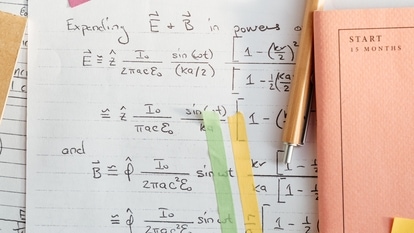 Expanding E⃗ + B⃗ in powers o
E⃗ ≅ ẑ I₀/2πacε₀ sin(ωt)/(ka/2) [1 - (kr/2)²
1 - ½(ka/2
≅ ẑ I₀/πacε₀ sin( t)/ka [1 - (
and
B⃗ ≅ φ̂ I₀/2πac²ε₀ sinωt kr/ka [1 - ½
[1 - ½
≅ φ̂ I₀/2πac²ε₀ sinωt
START
15 MONTHS